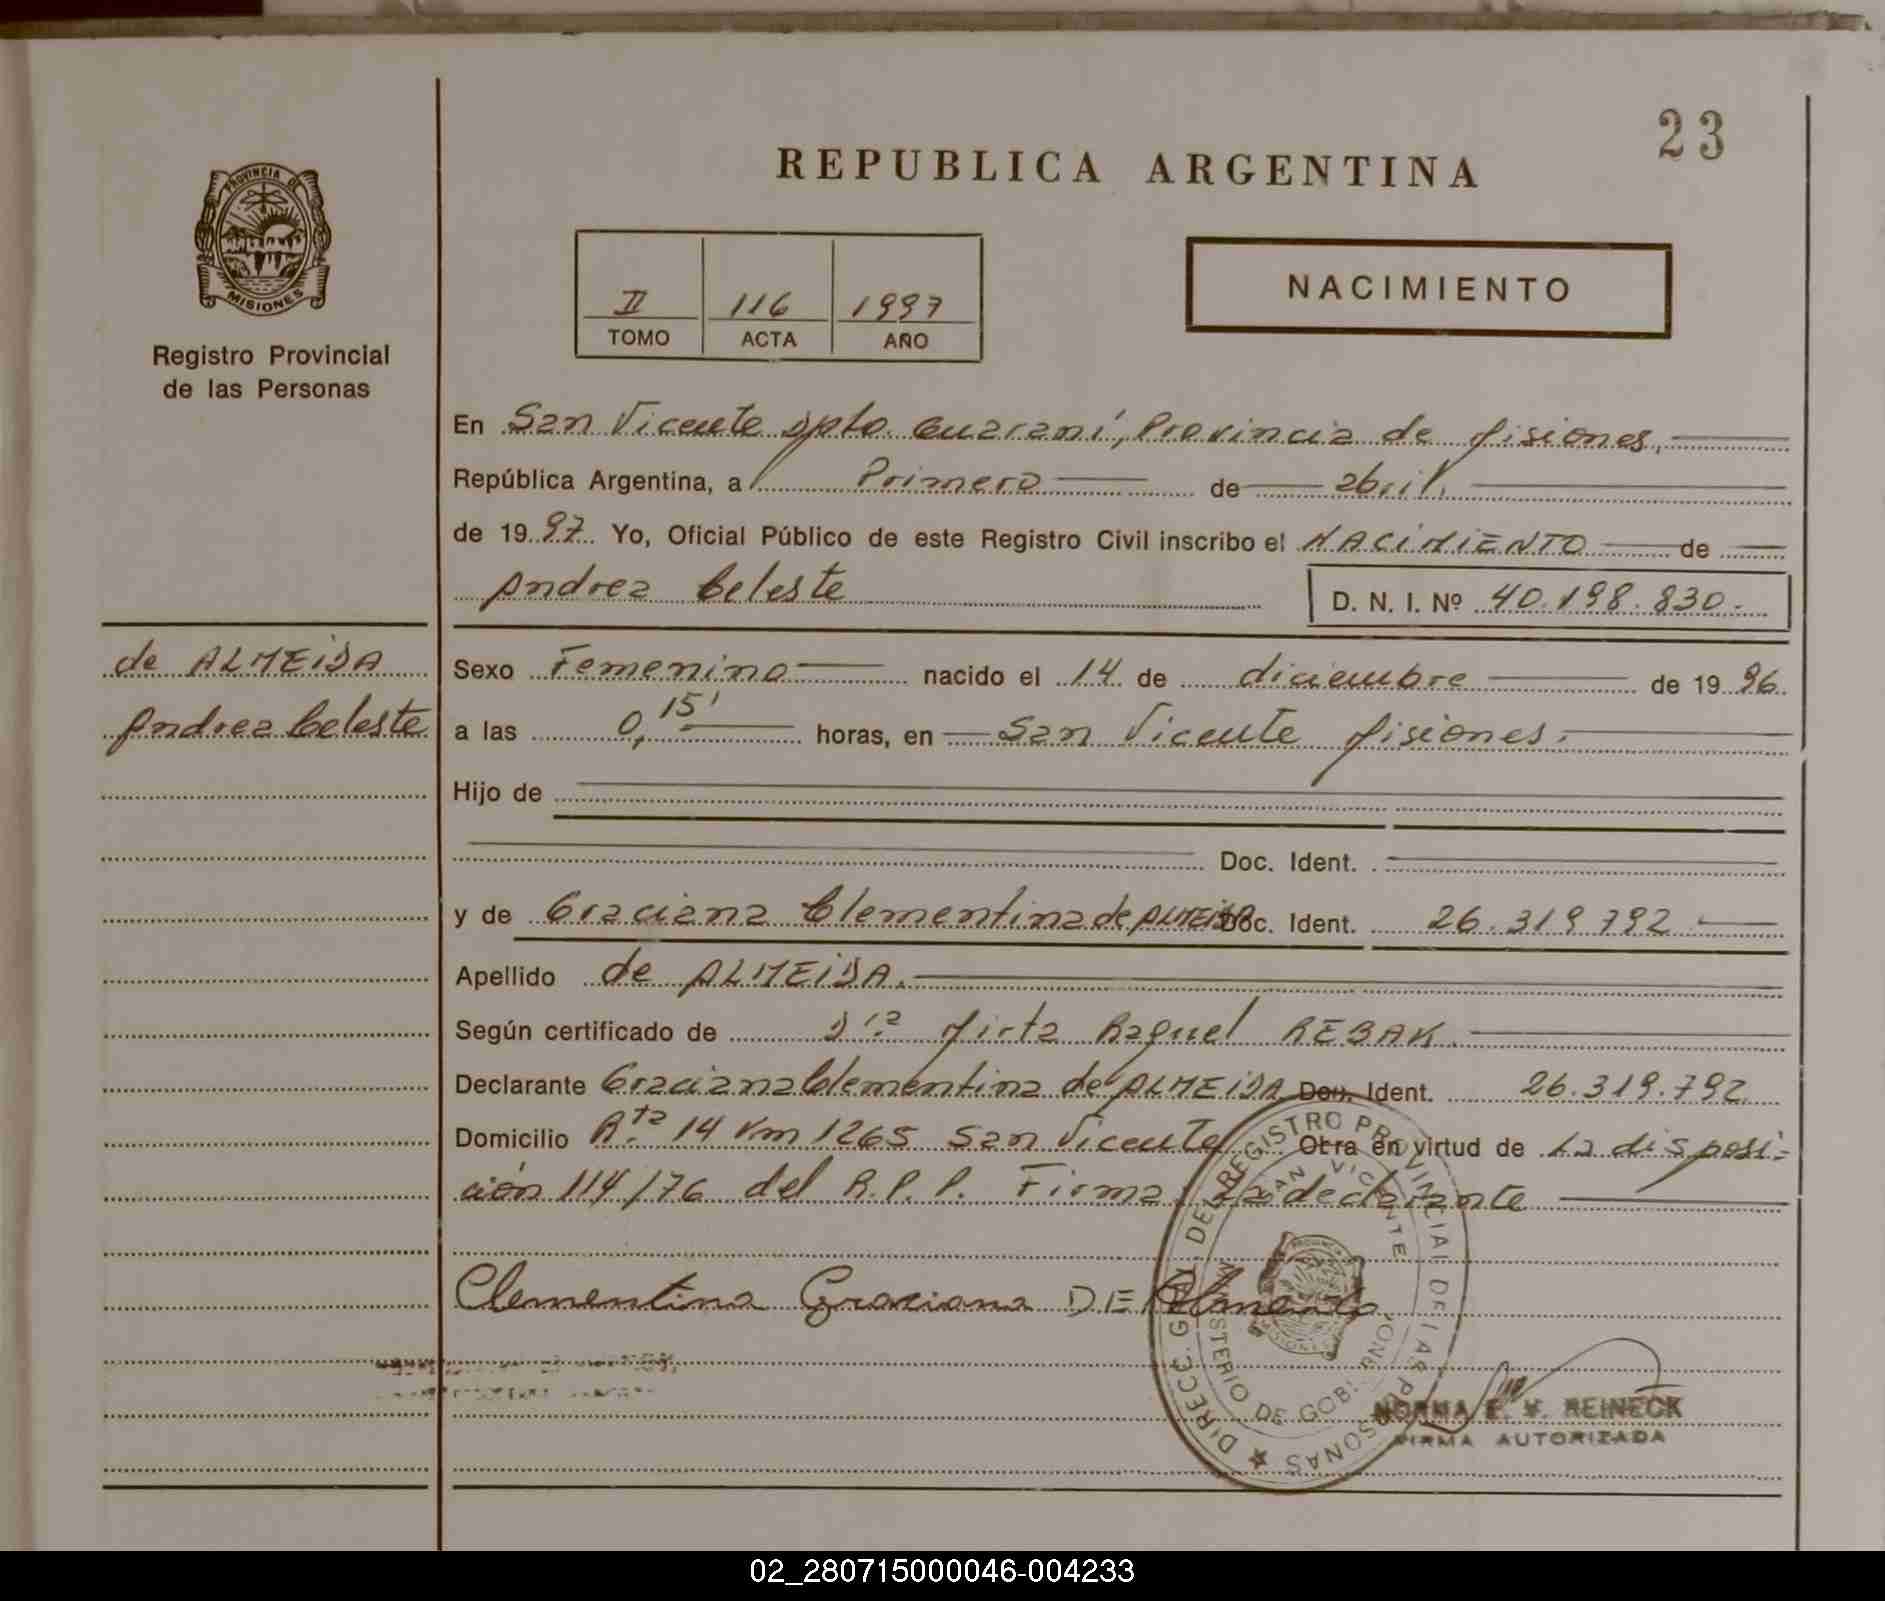 23
REPUBLICA ARGENTINA
PROVINCIA DE
MISIONES
Registro Provincial
de las Personas
II 116 1997
TOMO ACTA AÑO
NACIMIENTO
En San Vicente Dpto. Guaraní, Provincia de Misiones,
República Argentina, a Primero de abril
de 1997. Yo, Oficial Público de este Registro Civil inscribo el NACIMIENTO de
Andrea Celeste D. N. I. Nº 40.198.830.-
de ALMEIDA
Andrea Celeste
Sexo Femenino nacido el 14 de diciembre de 1996.
a las 0,15' horas, en San Vicente Misiones.
Hijo de
Doc. Ident.
y de Graciana Clementina de ALMEIDA Doc. Ident. 26.319.792
Apellido de ALMEIDA.
Según certificado de Dra Mirta Raquel REBAK.
Declarante Graciana Clementina de ALMEIDA Doc. Ident. 26.319.792
Domicilio Rta 14 Km 1265 San Vicente Obra en virtud de La disposi=
ción 114/76 del R.P.P. Firma: La declarante
Clementina Graciana DE Almeida
DIRECC. GRAL. DEL REGISTRO PROVINCIAL DE LAS PERSONAS
SAN VICENTE
MINISTERIO DE GOBIERNO
NORMA E. V. REINECK
FIRMA AUTORIZADA
02_280715000046-004233